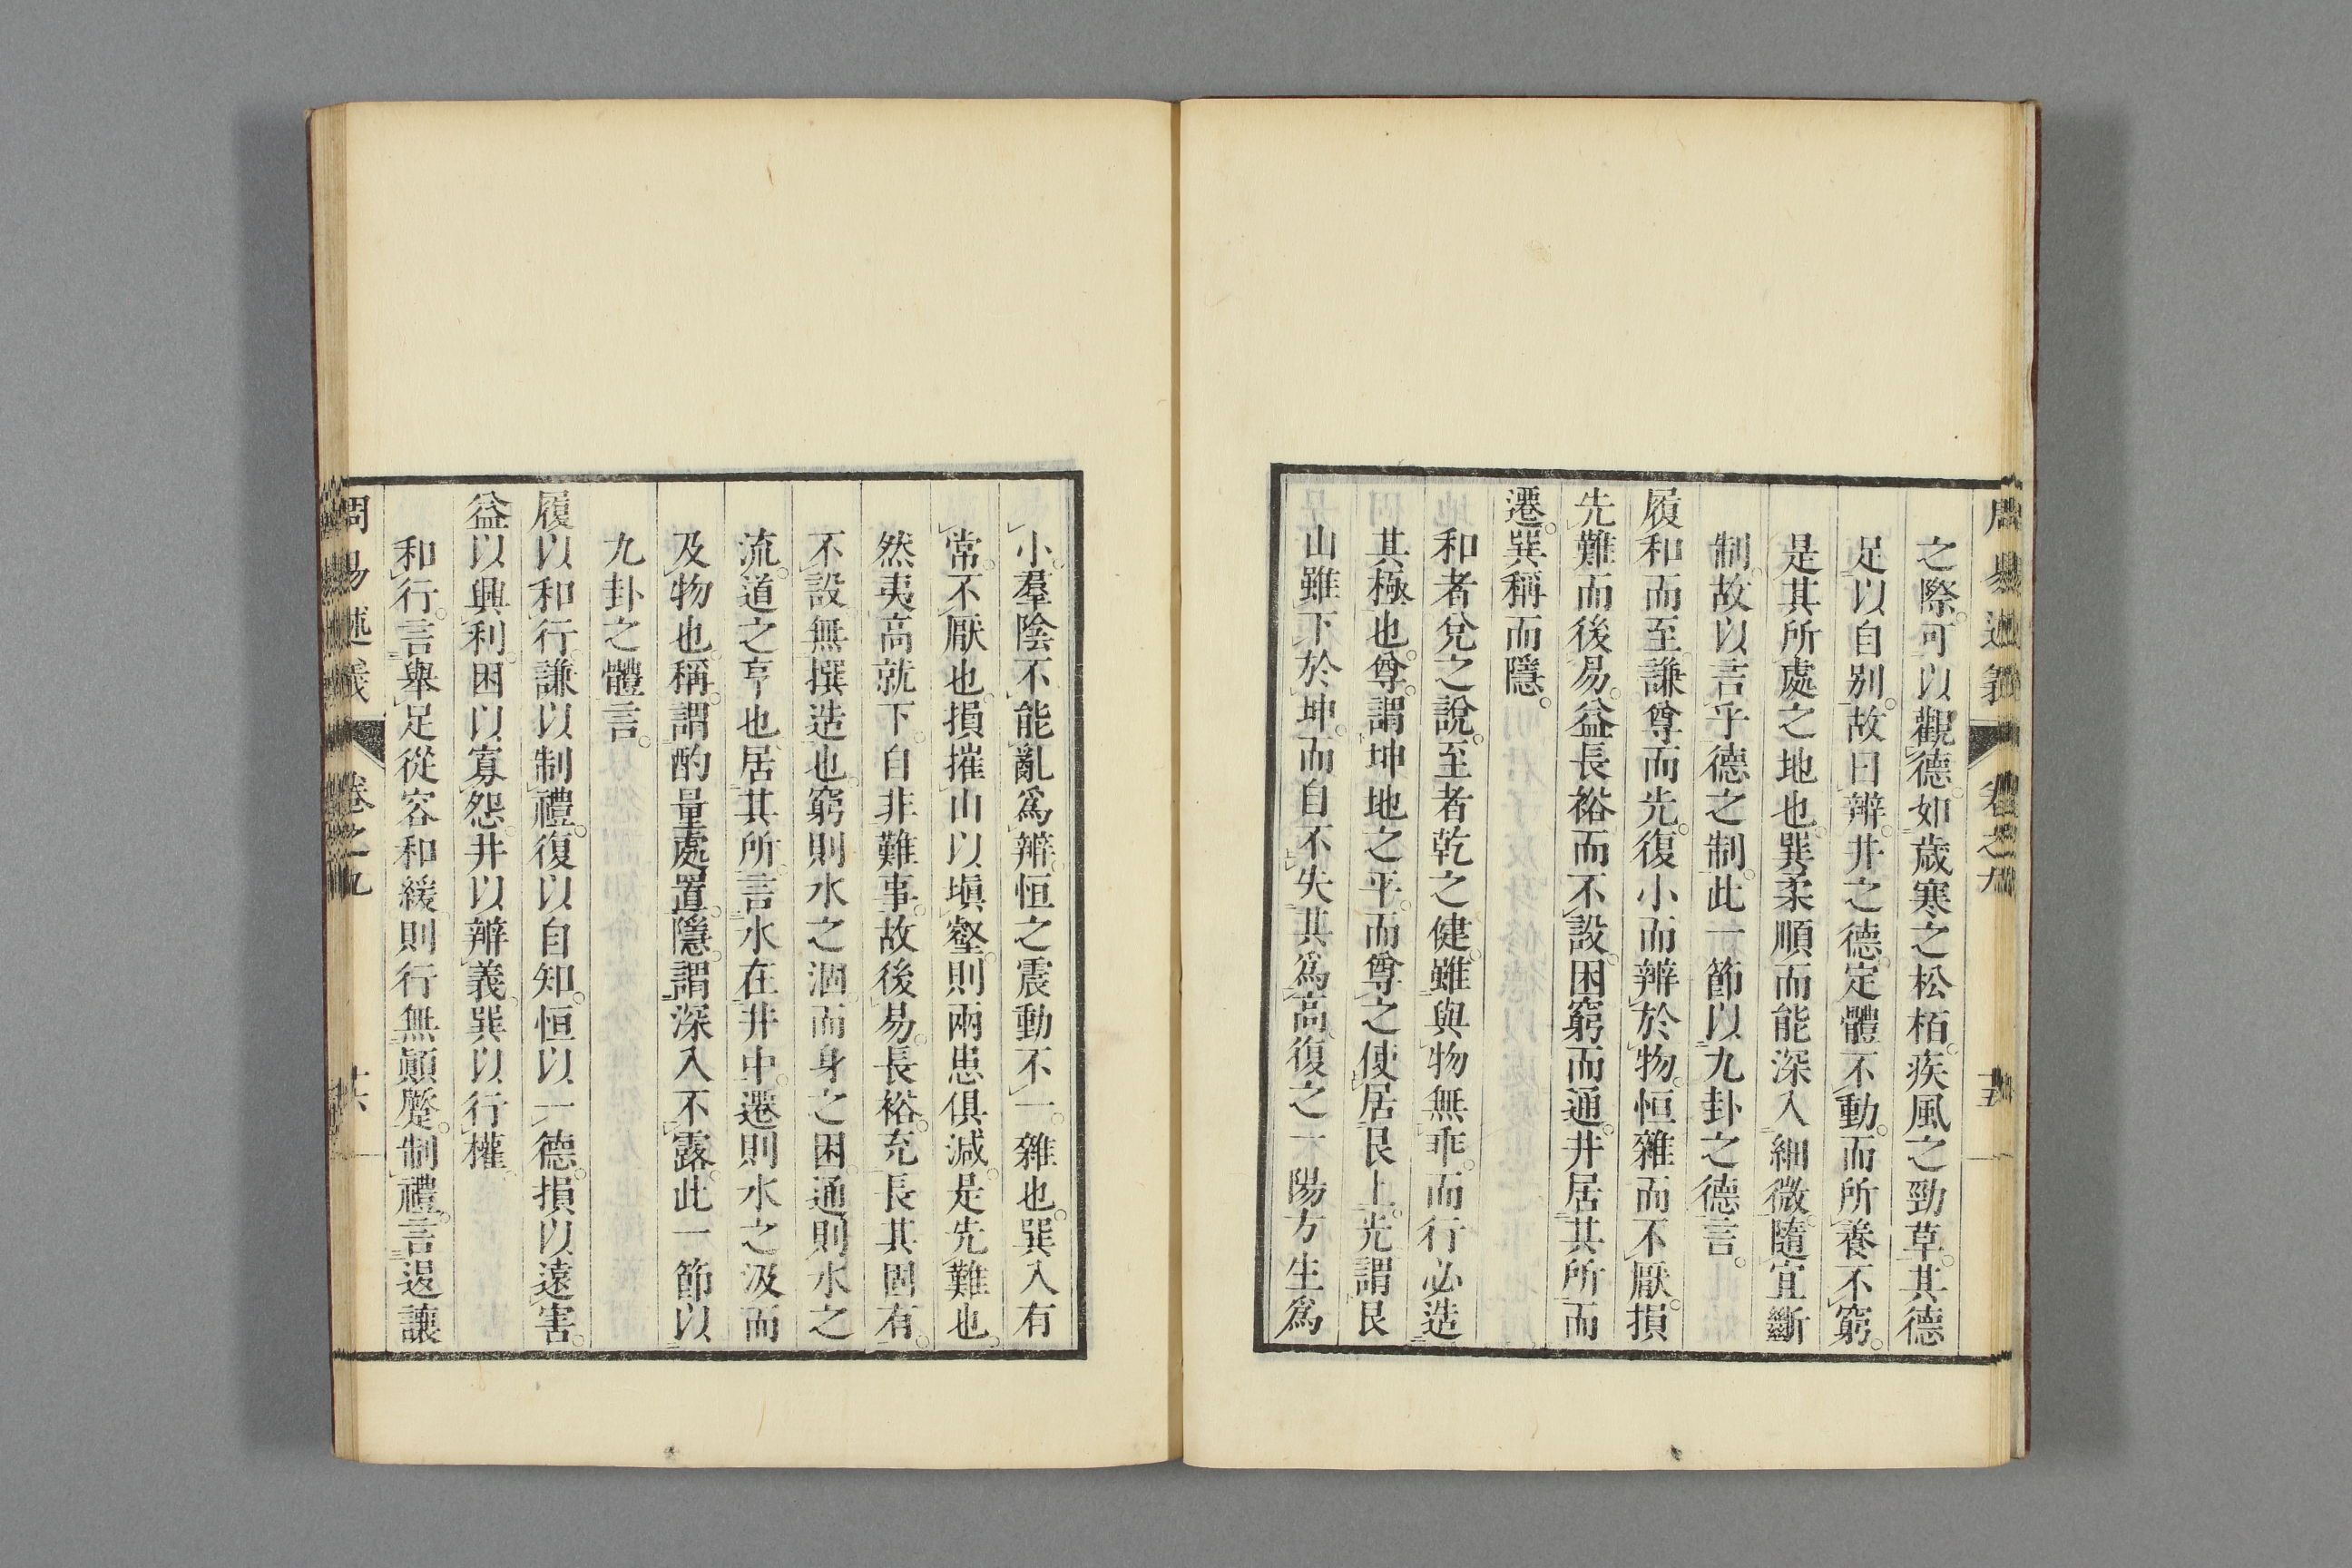 之際。可以觀德。如歲寒之松栢。疾風之勁草。其德
足以自別。故曰辨。井之德。定體不動。而所養不窮。
是其所處之地也。巽柔順而能深入細微。隨宜斷
制。故以言乎德之制。此一節以九卦之德言。
履和而至。謙尊而光。復小而辨於物。恒雜而不厭。損
先難而後易。益長裕而不設。困窮而通。井居其所而
遷。巽稱而隱。
和者兌之說。至者乾之健。雖與物無乖。而行必造
其極也。尊。謂坤地之平。而尊之使居艮上。光謂艮
山雖下於坤。而自不失其爲高。復之一陽方生爲
小。羣陰不能亂爲辨。恒之震動不一。雜也。巽入有
常。不厭也。損摧山以塡壑。則兩患俱減。是先難也。
然夷高就下。自非難事。故後易。長裕。充長其固有。
不設無撰造也。窮則水之涸。而身之困。通則水之
流。道之亨也。居其所。言水在井中。遷則水之汲而
及物也。稱。謂酌量處置。隱。謂深入不露。此一節以
九卦之體言。
履以和行。謙以制禮。復以自知。恒以一德。損以遠害。
益以興利。困以寡怨。井以辨義。巽以行權。
和行。言舉足從容和緩則行無顚蹷。制禮。言退讓
周易述義 卷之九